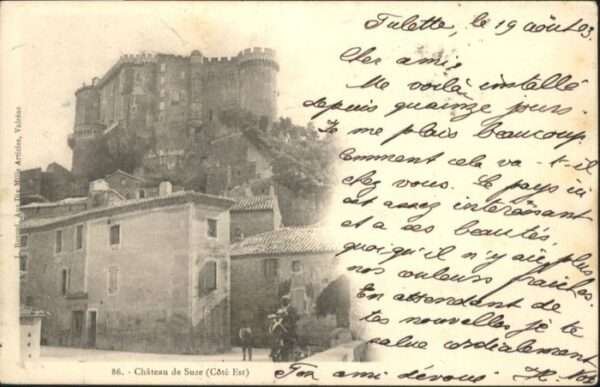 Tulette, le 19 août 03.
Cher ami,
Me voilà installé
depuis quainze jours.
Je me plais beaucoup.
Comment cela va-t-il
chez vous. Le pays ici
est assez intéressant
et a ses beautés,
quoiqu'il n'y aie plus
nos couleurs fraîches.
En attendant de
tes nouvelles, je te
salue cordialement
Ton ami dévoué H.
J. Brunet, A la Dlle Mille Articles, Valréas
86. - Château de Suze (Côté Est)